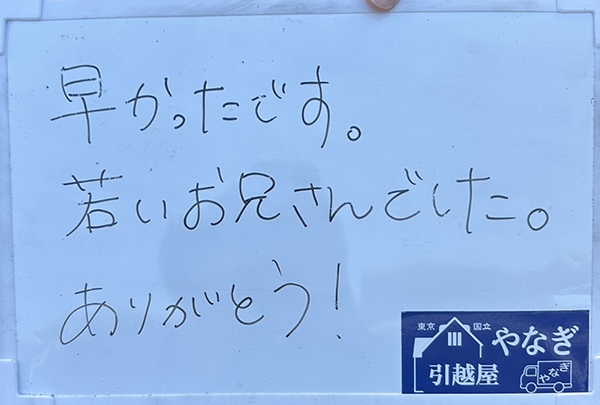 早かったです。
若いお兄さんでした。
ありがとう!
東京 国立 やなぎ
引越屋 やなぎ